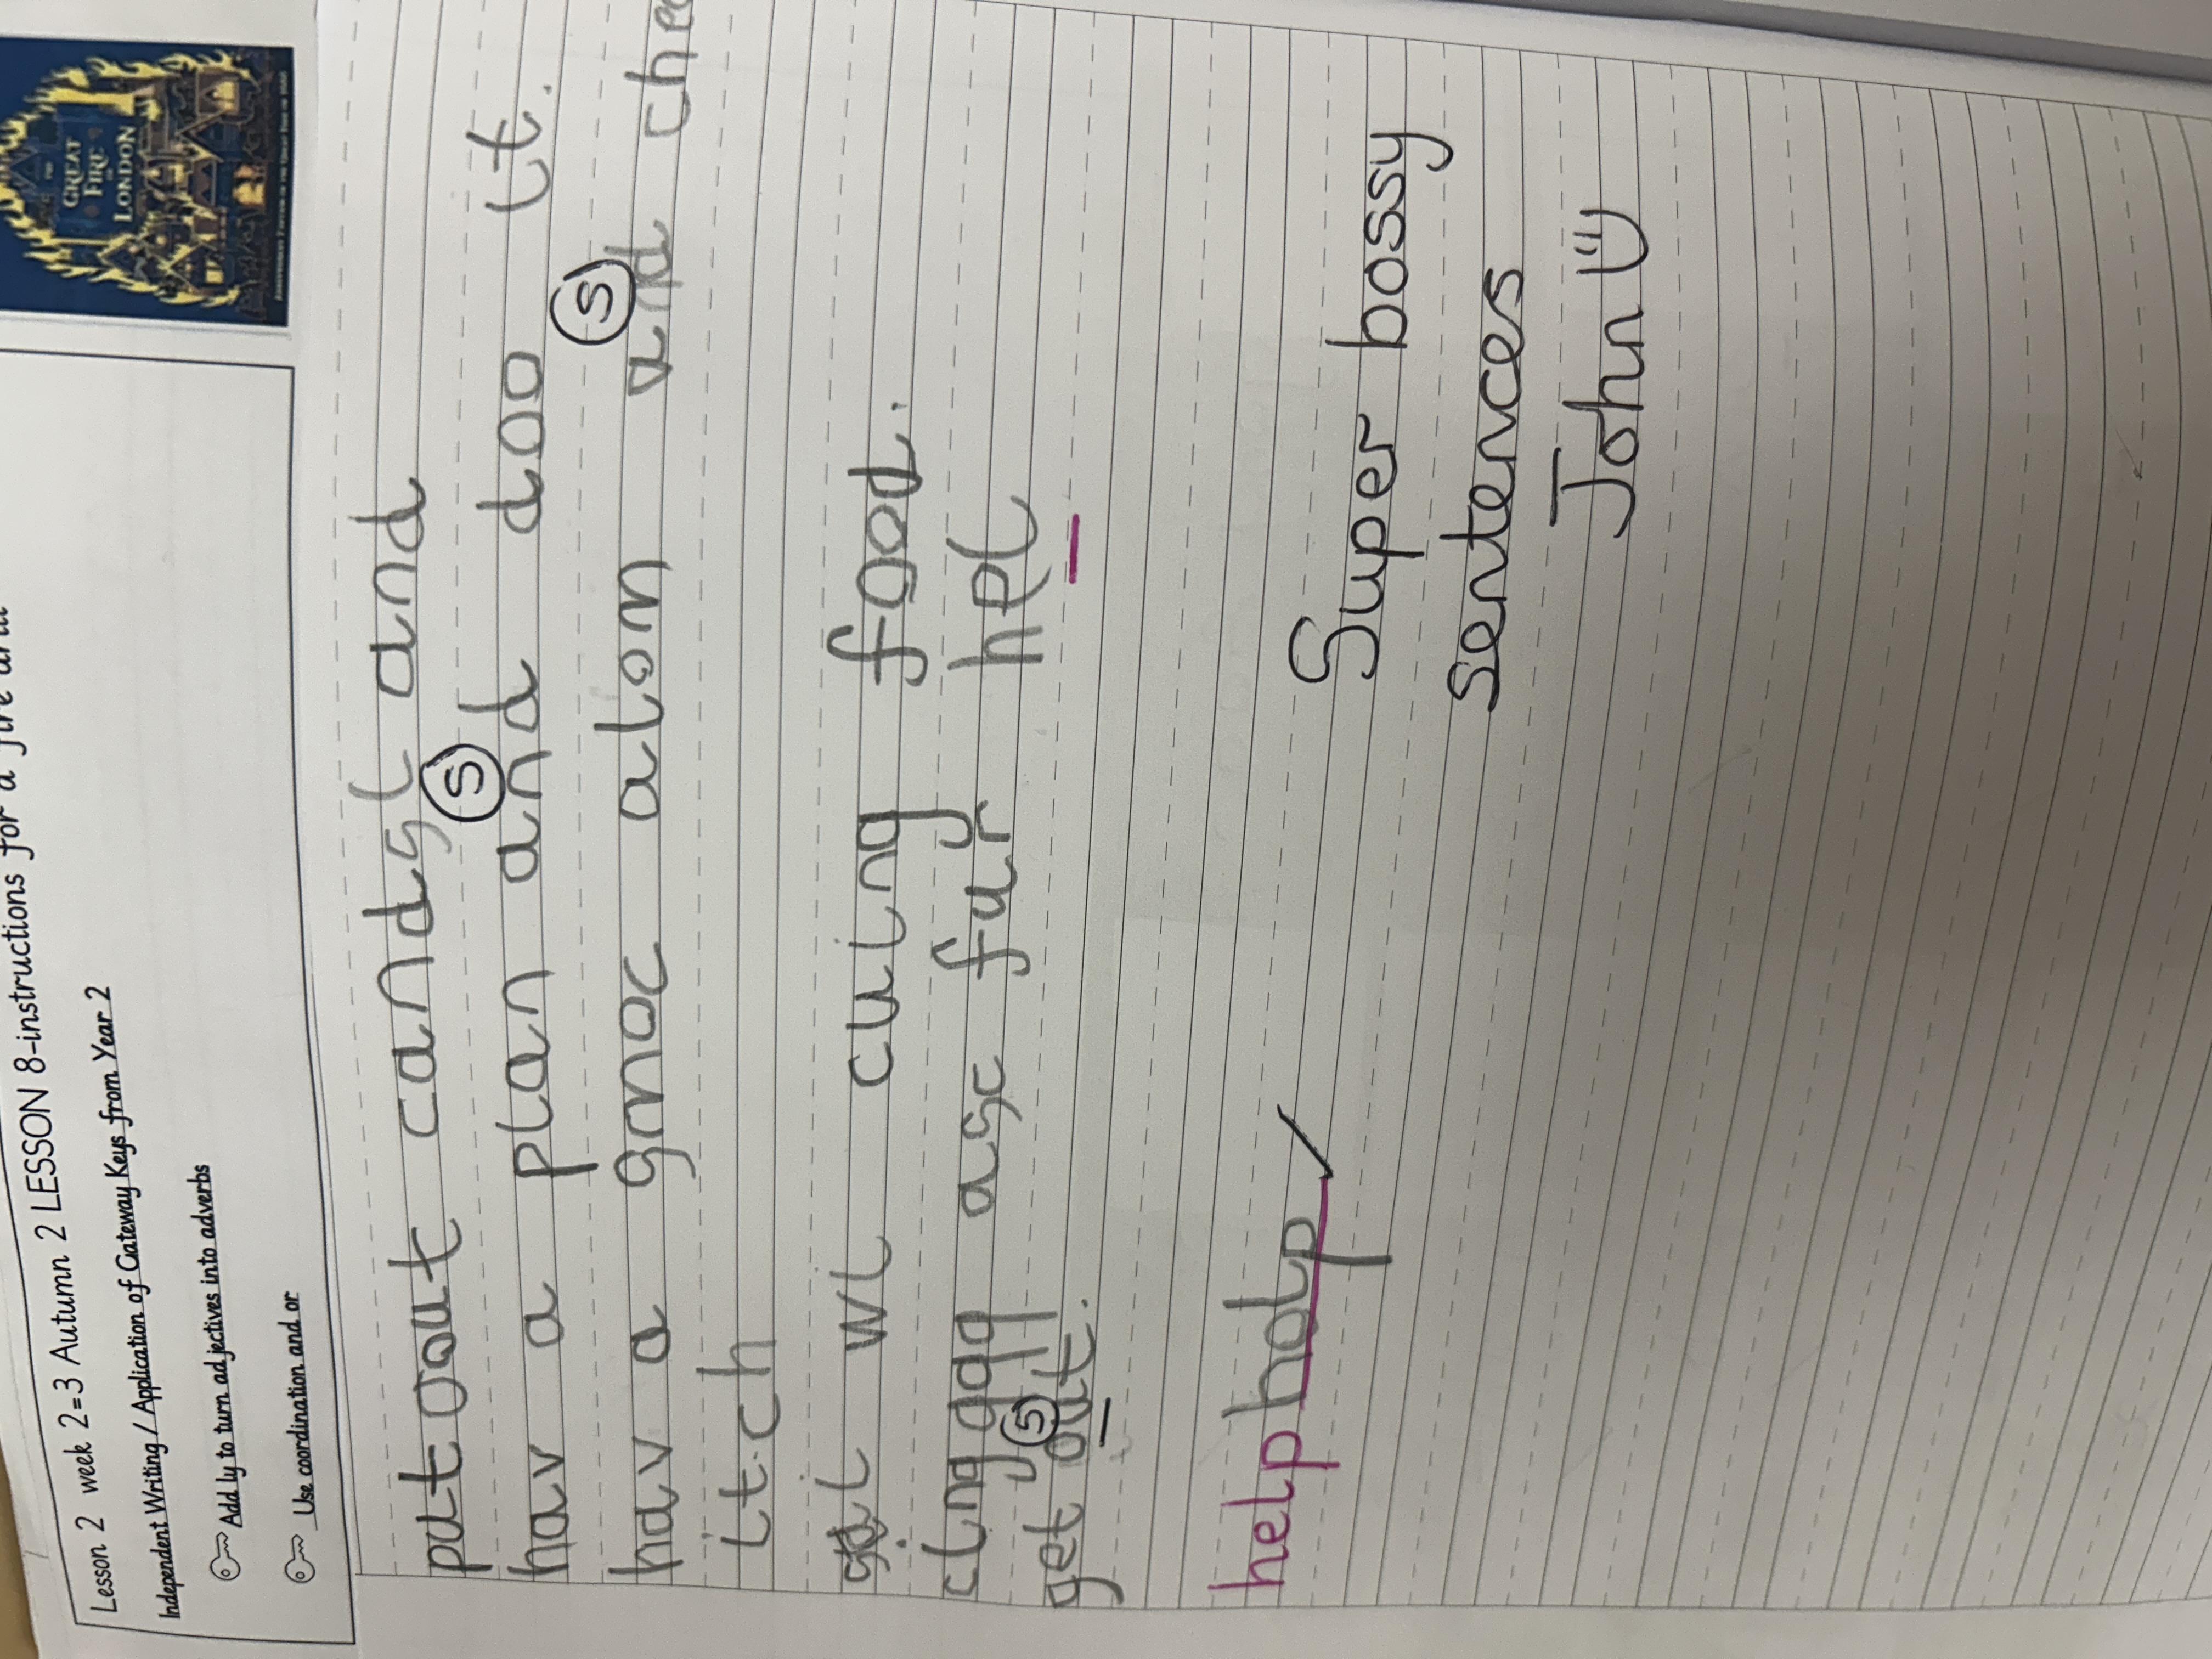 Lesson 2 week 2=3 Autumn 2 LESSON 8-instructions for a fire drill
Independent Writing / Application of Gateway Keys from Year 2
Add ly to turn adjectives into adverbs
Use coordination and or
GREAT
FIRE
LONDON
put oout candsl and
S
hav a plan and doo it.
S
hav a gmoc alom and chec
it.ch
wl cuing food.
asc fur hel
S
get out.
help holp
Super bossy
sentences
John